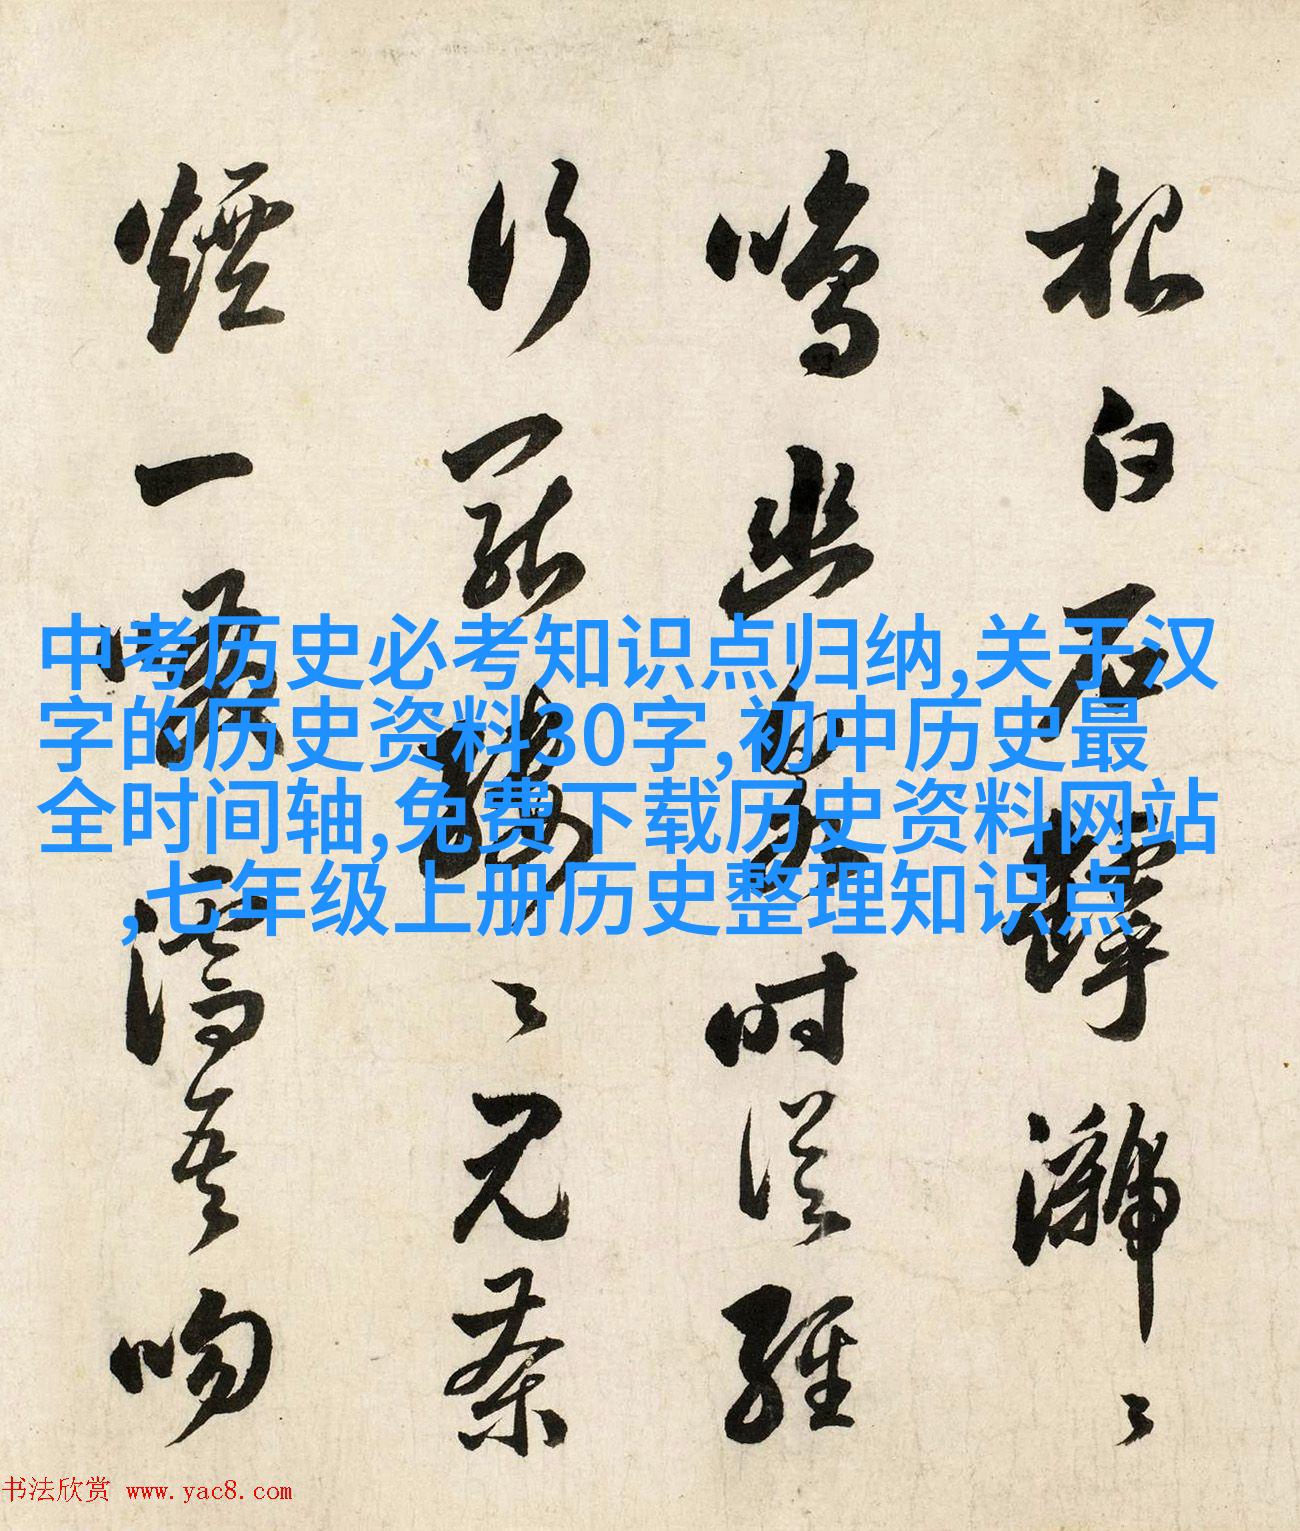 根白石
鳴幽時從經
行罷茶
煙一濡吾吻
中考历史必考知识点归纳,关于汉
字的历史资料30字,初中历史最
全时间轴,免费下载历史资料网站
,七年级上册历史整理知识点
书法欣赏 www.yac8.com